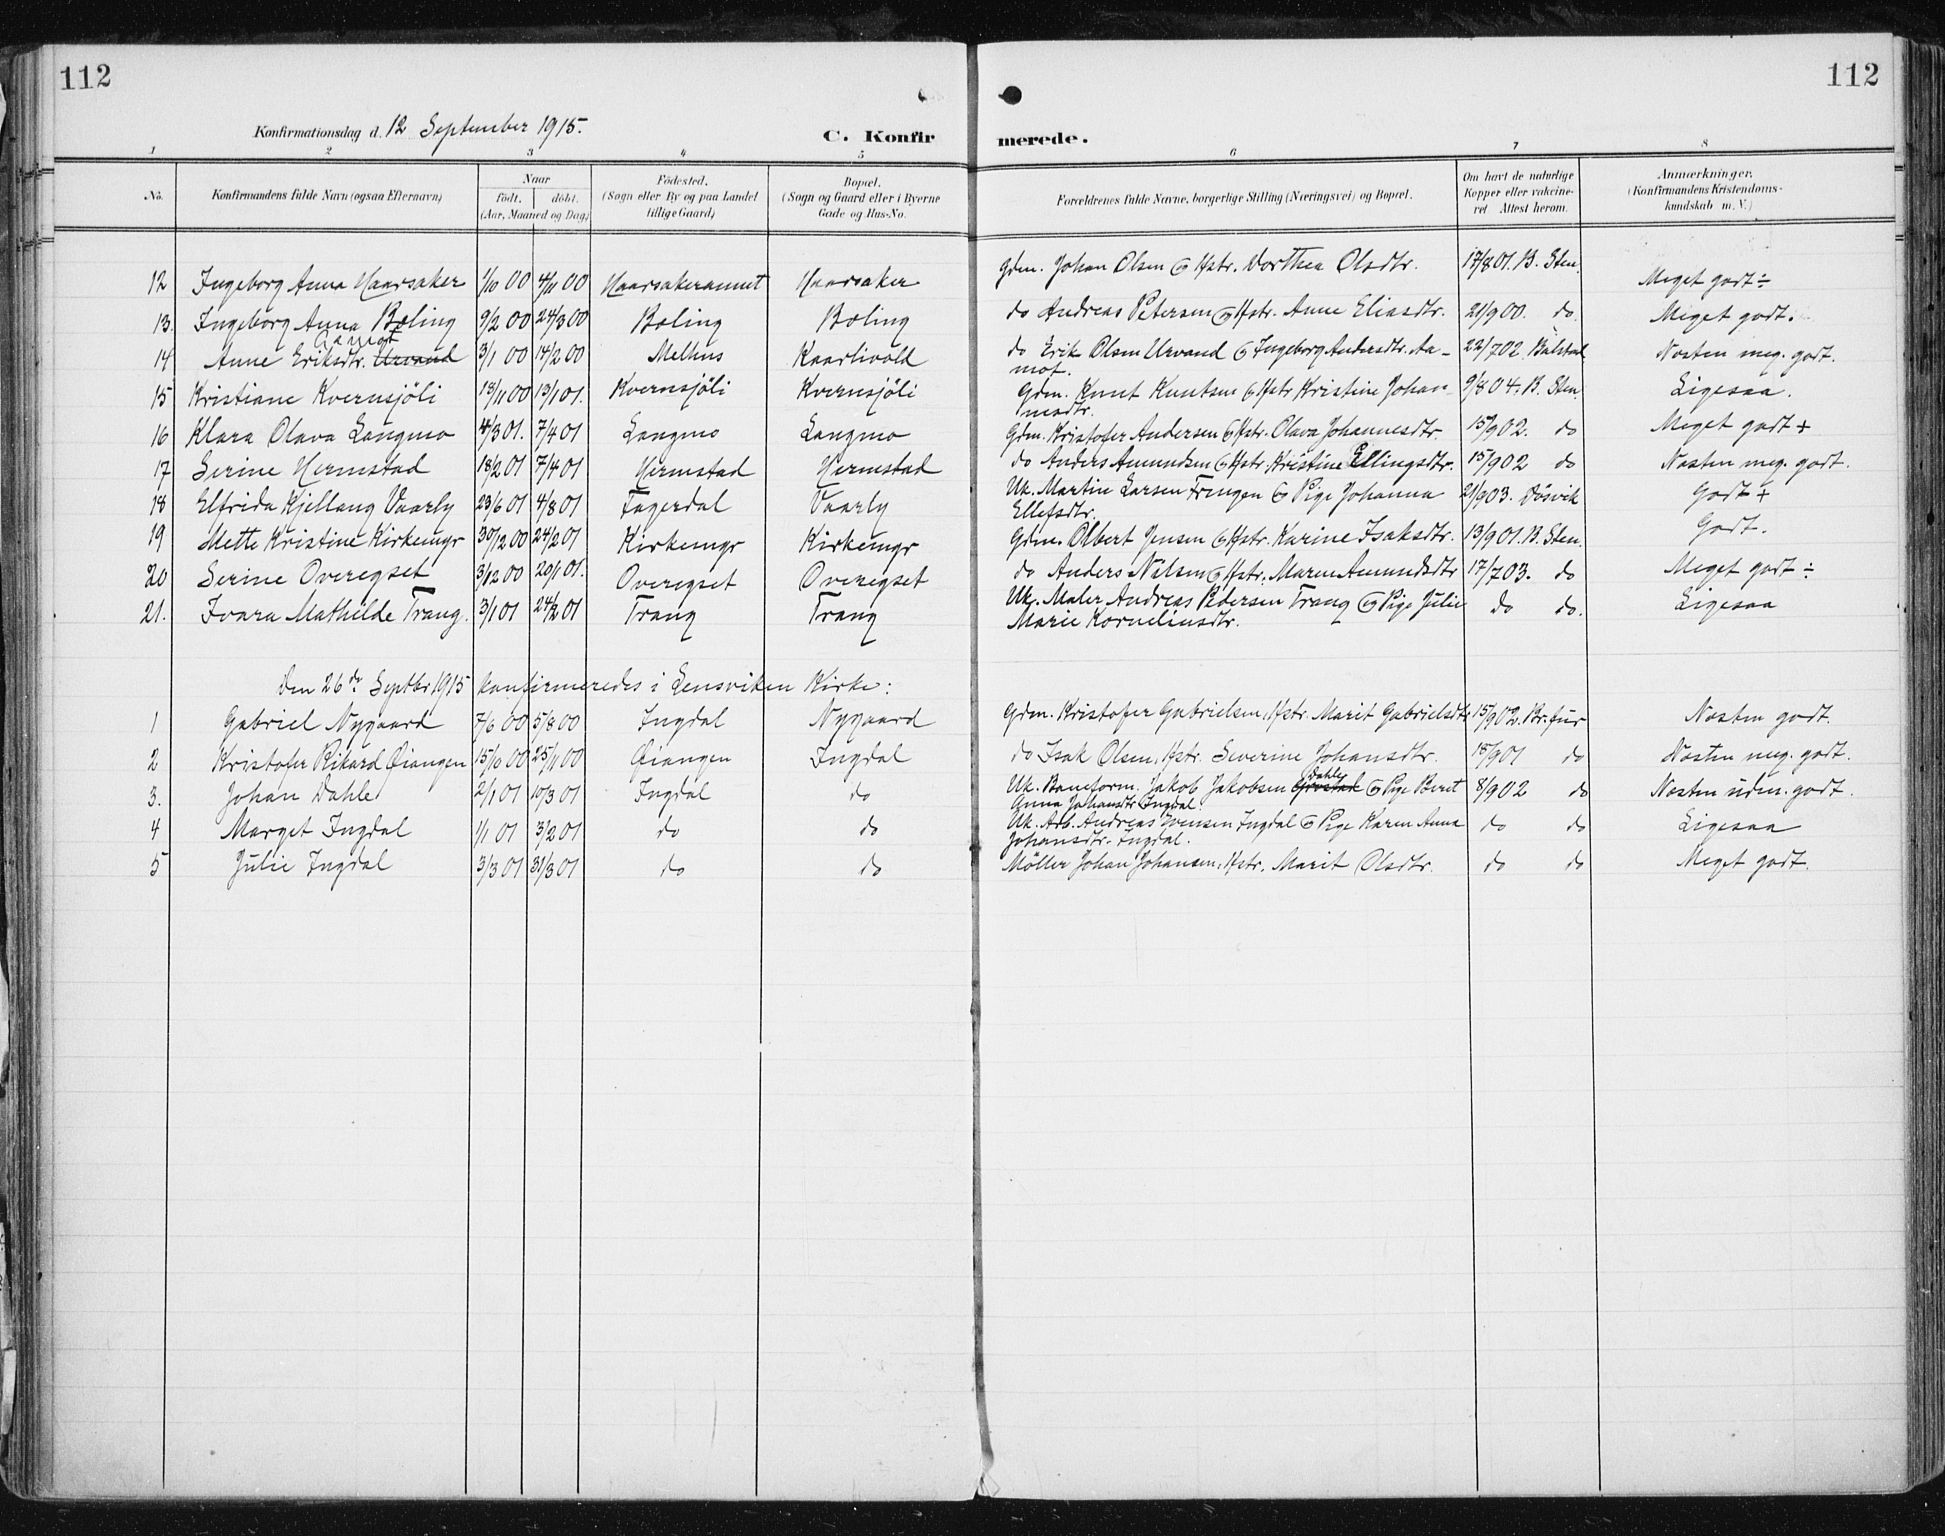 112
112
Konfirmationsdag d. 12 September 1915.
C. Konfir
merede.
1 2 3 4 5 6 7 8
No. Konfirmandens fulde Navn (ogsaa Efternavn) Naar født. døbt. (Aar, Maaned og Dag) Fødested. (Sogn eller By og paa Landet tillige Gaard) Bopæl. (Sogn og Gaard eller i Byerne Gade og Hus-No. Forældrenes fulde Navne, borgerlige Stilling (Næringsvei) og Bopæl. Om havt de naturlige Kopper eller vakcineret Attest herom. Anmærkninger. (Konfirmandens Kristendomskundskab m. V.)
12 Ingeborg Anna Haarsaker 1/10 00 4/11 00 Haarsakeraunet Haarsaker Gdm. Johan Olsen & Hstr. Dorthea Olsdtr. 17/8 01. B. Sten. Meget godt ÷
13. Ingeborg Anna Boling 9/2 00 24/3 00 Boling Boling do Andreas Petersen & Hstr. Anne Eliasdtr. 21/9 00. do. Meget godt.
Aamot
14 Anne Eriksdtr. Urvand 3/1 00 14/2 00 Melhus Kaartivold do Erik Olsen Urvand & Ingeborg Andersdtr. Aa- 22/7 02. Bulstad Næsten meg. godt.
mot.
15 Kristiane Kvernsjöli 13/11 00 13/1 01. Kvernsjöli Kvernsjöli Gdm. Knut Knutsen & Hstr Kristine Johan- 9/8 04. B. Sten Ligesaa.
nesdtr.
16 Klara Olava Langmo 4/3 01. 7/4 01 Langmo Langmo Gdm. Kristofer Andersen & Hstr. Olava Johannesdtr. 15/9 02. do Meget godt +
17 Serine Hermstad 18/2 01 7/4 01 Hermstad Hermstad do Anders Amundsen & Hstr. Kristine Ellingsdtr. 15/9 02 do Næsten meg. godt.
18 Elfrida Kjellaug Vaarly 23/6 01 4/8 01 Fagerdal Vaarly Uk. Martin Larsen Trngen & Pige Johanna 21/9 03. Døsvik Godt +
Ellefsdtr.
19 Mette Kristine Kirkemyr 30/12 00 24/2 01 Kirkemyr Kirkemyr Gdm. Olbert Jensen & Hstr. Karine Isaksdtr. 13/9 01. B. Sten. Godt.
20 Serine Overegset 3/12 00 20/1 01. Overegset Overegset do Anders Nilsen & Hstr. Maren Amundsdtr 17/7 03. do Meget godt ÷
21. Ivara Mathilde Trang. 3/1 01 24/2 01 Trang Trang Uk. Maler Andreas Pedersen Trang & Pige Julie do do. Ligesaa
Marie Korneliusdtr.
Den 26de Septbr 1915 konfirmeredes i Lensviken Kirke:
1 Gabriel Nygaard 7/6 00 5/8 00 Ingdal Nygaard Gdm. Kristofer Gabrielsen, Hstr. Marit Gabrielsdtr 15/9 02. Br. fur Næsten godt.
2 Kristofer Rikard Øiangen 15/10 00 25/11 00 Øiangen Ingdal do Isak Olsen, Hstr. Severine Johansdtr. 18/9 01 do Næsten meg. godt.
Dahle
3. Johan Dahle 2/1 01 10/3 01 Ingdal do Uk. Baneform. Jakob Jakobsen Grostad & Pige Beret 8/9 02 do Næsten udm. godt.
Anna Johansdtr Ingdal.
4 Marget Ingdal 1/1 01 3/2 01 do do Uk. Arb. Andreas Evensen Ingdal & Pige Karen Anna do do Ligesaa
Johansdtr. Ingdal.
5 Julie Ingdal 3/3 01 31/3 01 do do Möller Johan Johansen, Hstr. Marit Olsdtr. do do Meget godt.